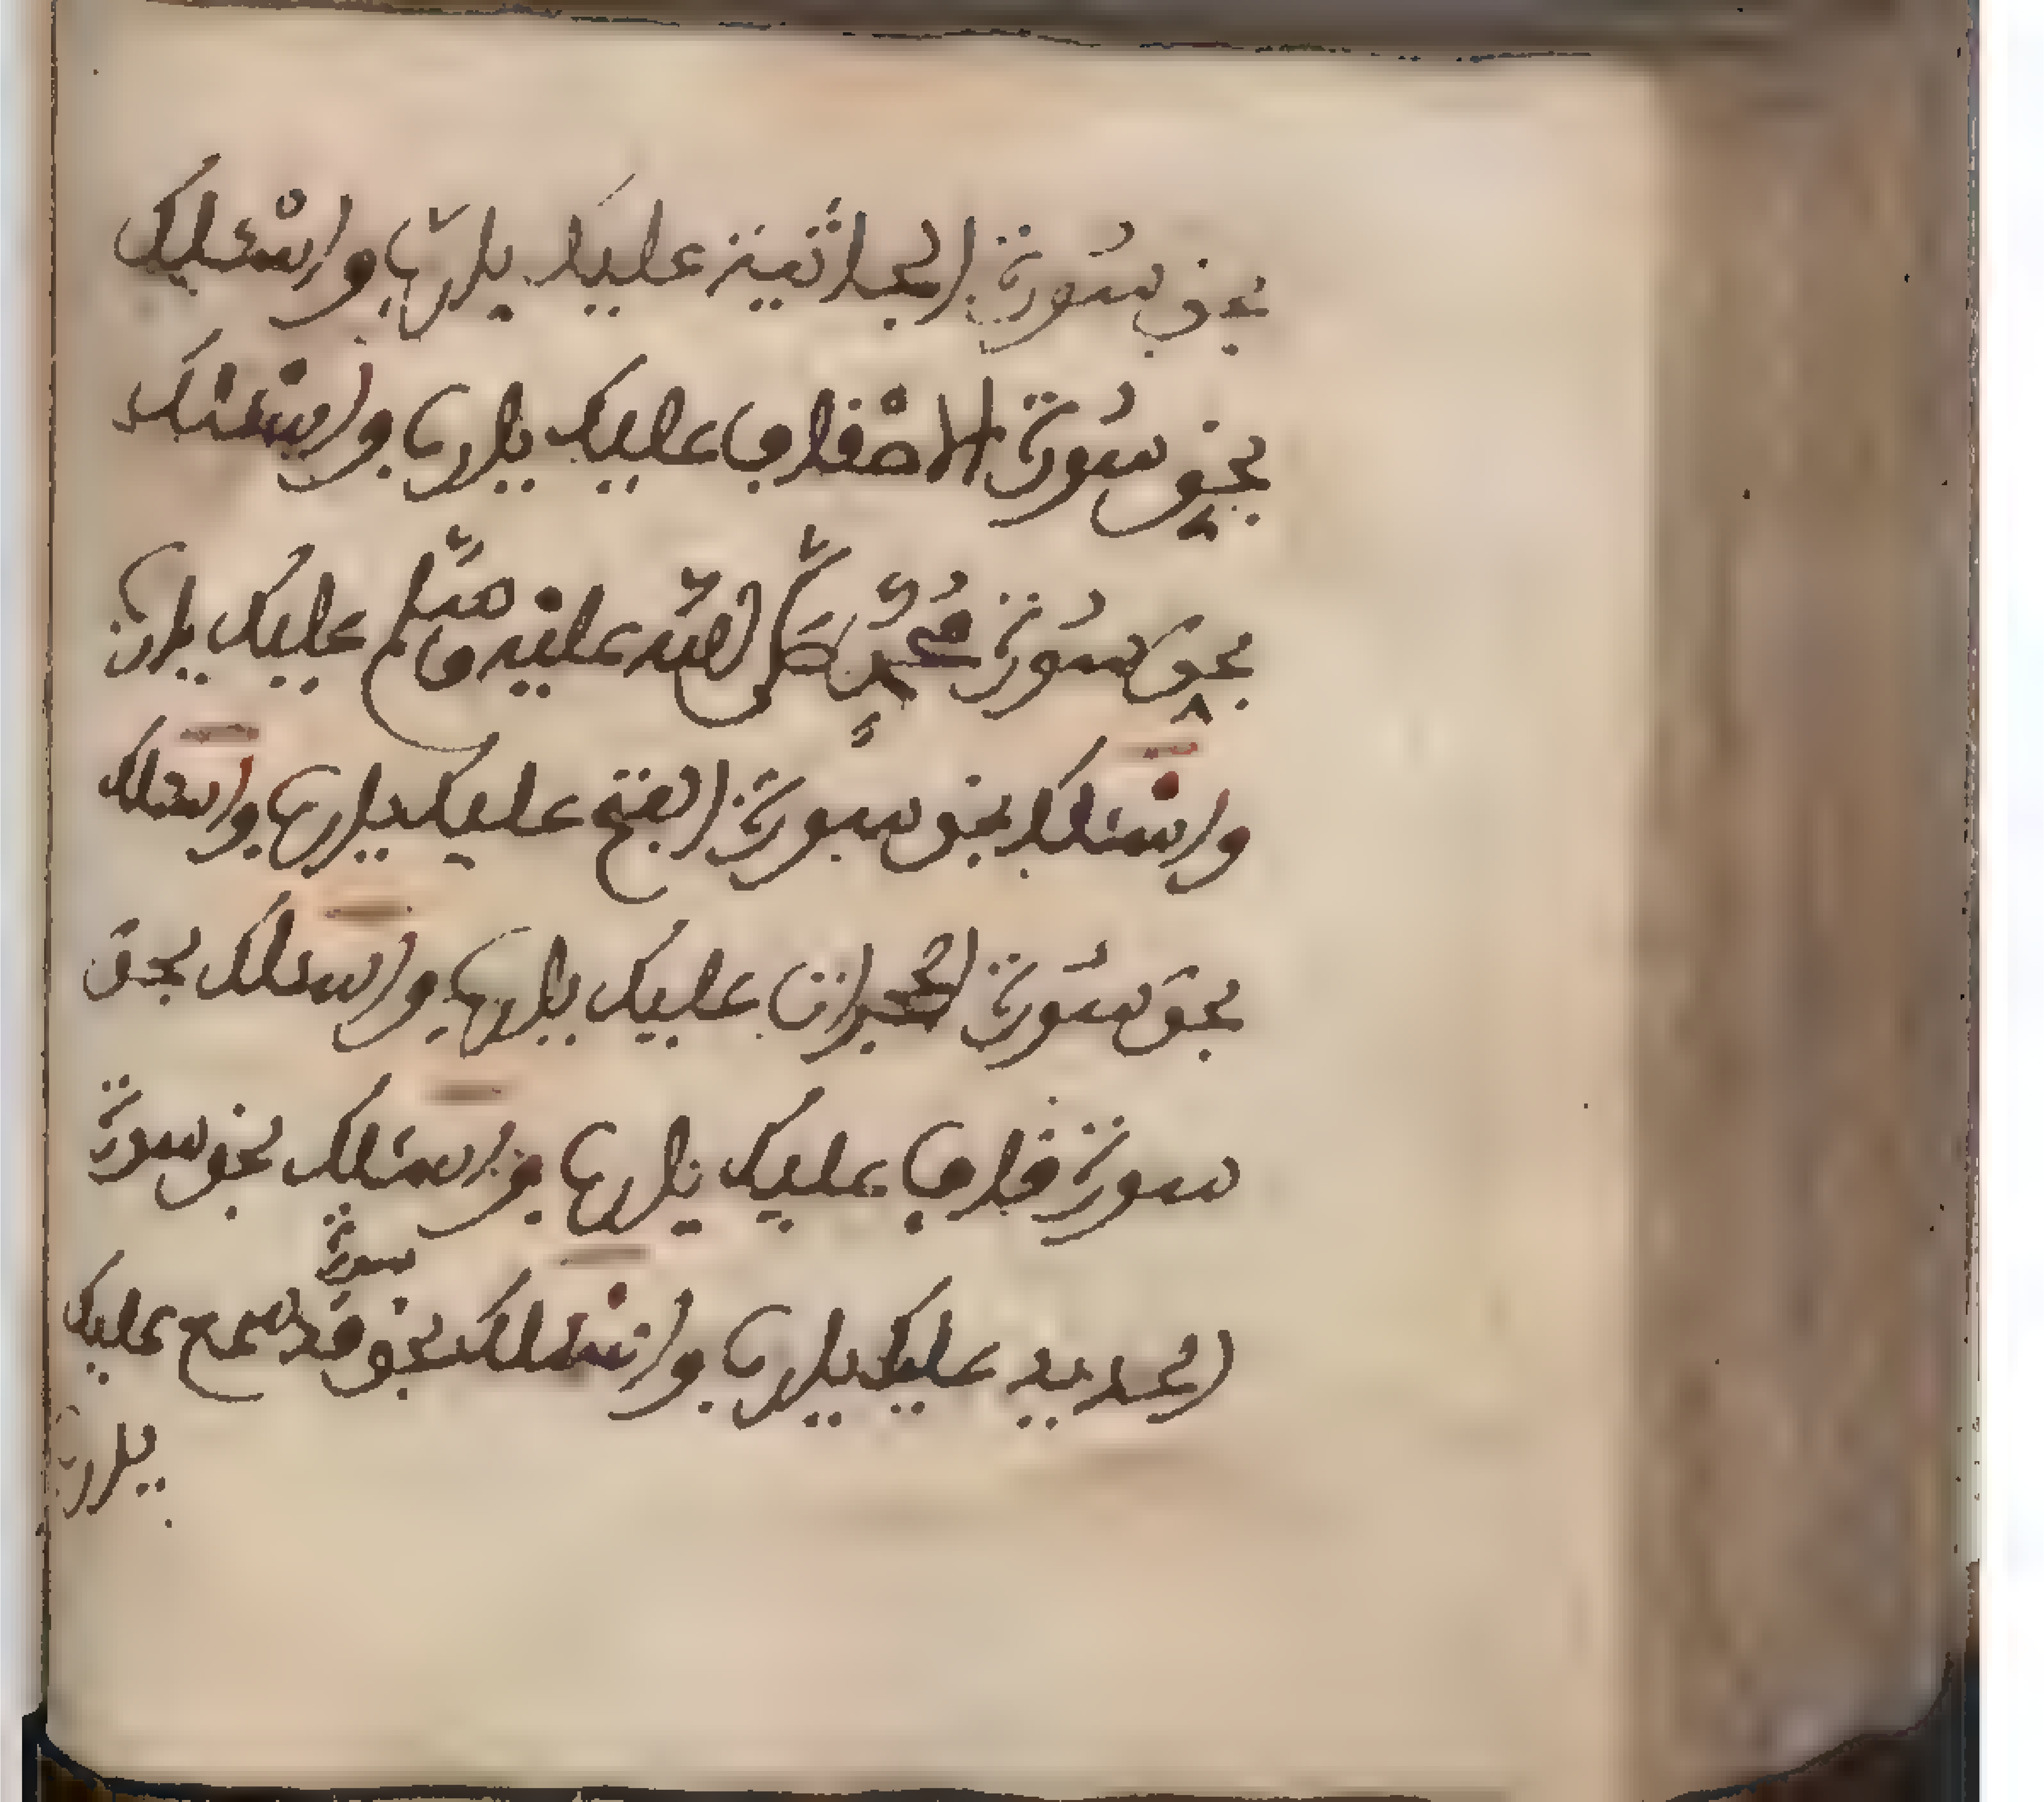 بحق سورة الجاثية عليك يا رب واسئلك
بحق سورة الاحقاف عليك يا رب واسئلك
بحق سورة محمد صلى الله عليه وسلم عليك يا رب
واسئلك بحق سورة الفتح عليك يا رب واسئلك
بحق سورة الحجرات عليك يا رب واسئلك بحق
سورة قاف عليك يا رب واسئلك بحق سورة
الحديد عليك يا رب واسئلك بحق سورة قد سمع عليك
يا رب